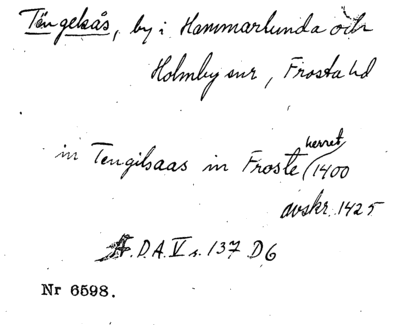 Tängelsås, by i Hammarlunda och
Holmby snr, Frosta hd
in Tengilsaas in Froste herret (1400
avskr. 1425
A.D.A. V s. 137 D6
Nr 6598.